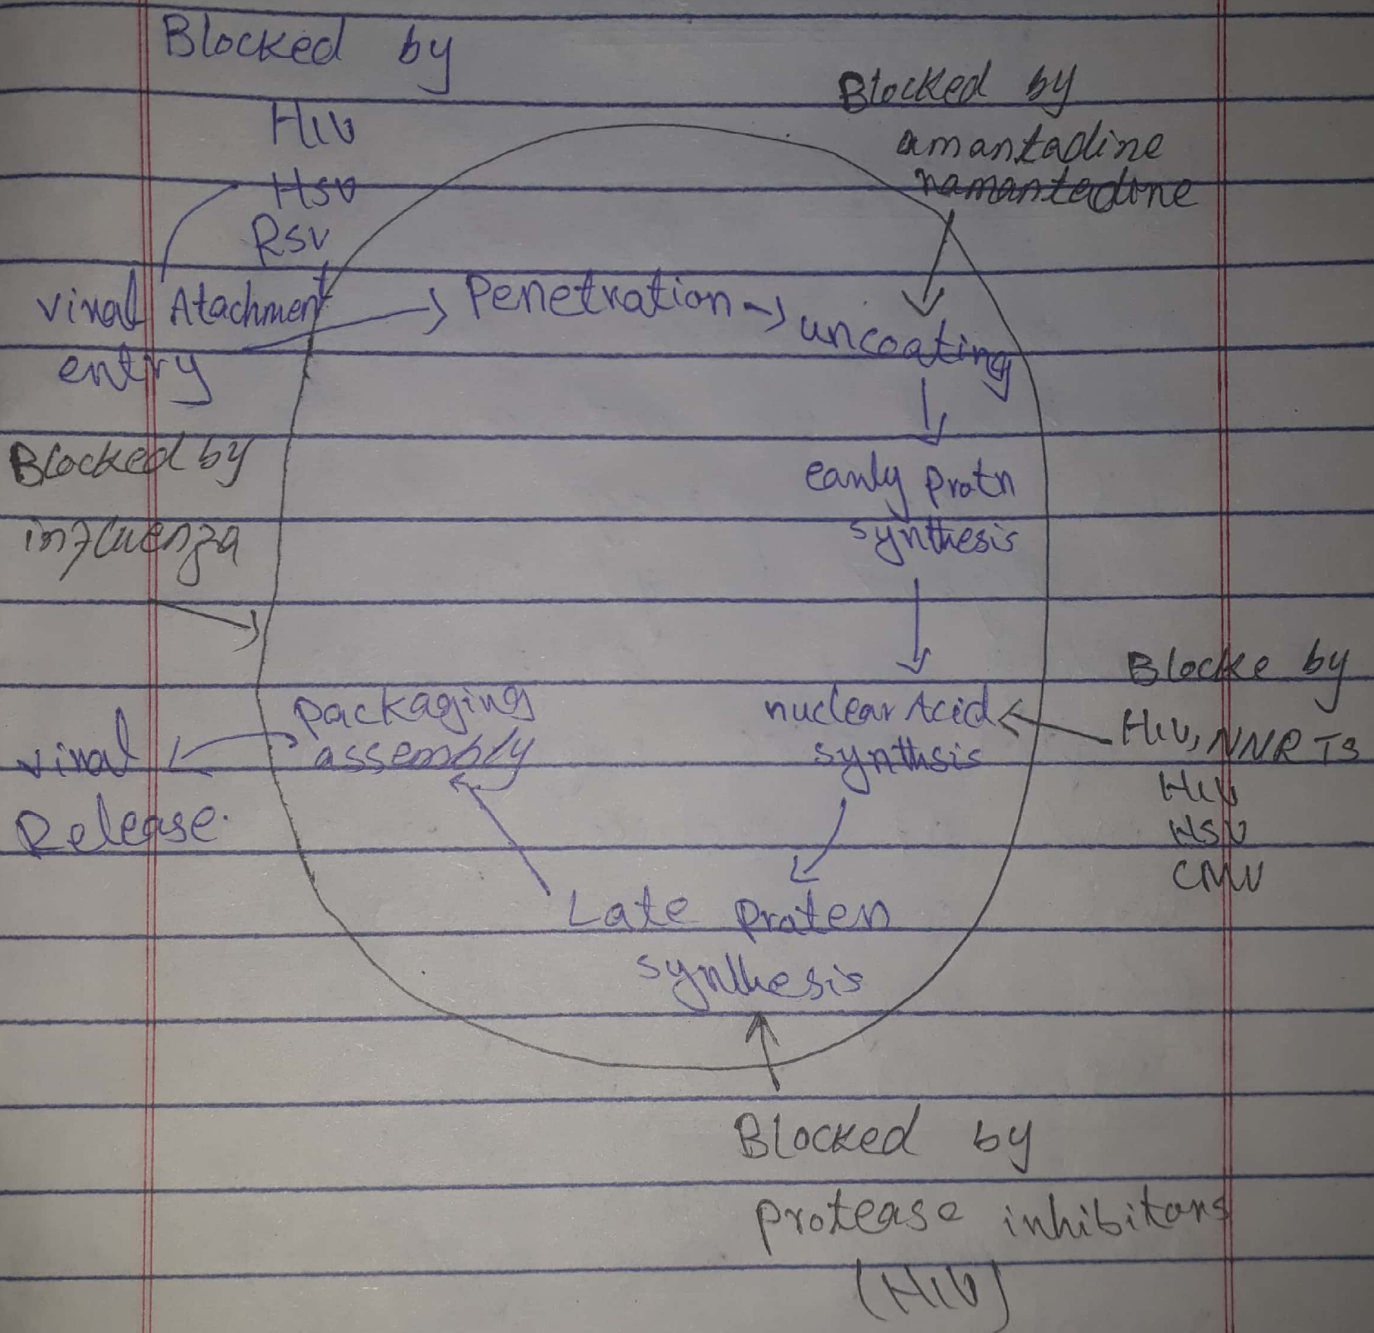 Blocked by
HIV
HSV
RSV
Blocked by
amantadine
ramantadine
viral Atachment
entry
Penetration
uncoating
Blocked by
influenza
early Protn
synthesis
Blocke by
HIV, NNRTS
HIV
HSV
CMV
nuclear Acid
synthsis
packaging
assembly
viral
Release.
Late Proten
synthesis
Blocked by
protease inhibitors
(HIV)